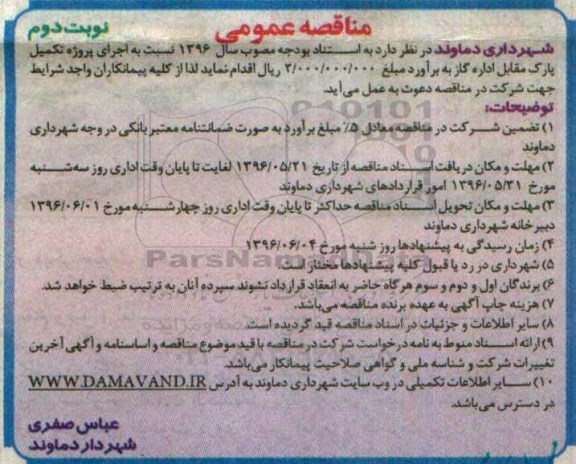 مناقصه عمومی
نوبت دوم
شهرداری دماوند در نظر دارد به استناد بودجه مصوب سال ۱۳۹۶ نسبت به اجرای پروژه تکمیل
پارک مقابل اداره گاز به برآورد مبلغ ۳/۰۰۰/۰۰۰/۰۰۰ ریال اقدام نماید لذا از کلیه پیمانکاران واجد شرایط
جهت شرکت در مناقصه دعوت به عمل می‌آید.
توضیحات:
۱) تضمین شرکت در مناقصه معادل ۵٪ مبلغ برآورد به صورت ضمانتنامه معتبر بانکی در وجه شهرداری
دماوند
۲) مهلت و مکان دریافت اسناد مناقصه از تاریخ ۱۳۹۶/۰۵/۲۱ لغایت تا پایان وقت اداری روز سه‌شنبه
مورخ ۱۳۹۶/۰۵/۲۱ امور قراردادهای شهرداری دماوند
۳) مهلت و مکان تحویل اسناد مناقصه حداکثر تا پایان وقت اداری روز چهارشنبه مورخ ۱۳۹۶/۰۶/۰۱
دبیرخانه شهرداری دماوند
۴) زمان رسیدگی به پیشنهادها روز شنبه مورخ ۱۳۹۶/۰۶/۰۴
۵) شهرداری در رد یا قبول کلیه پیشنهادها مختار است.
۶) برندگان اول و دوم و سوم هرگاه حاضر به انعقاد قرارداد نشوند سپرده آنان به ترتیب ضبط خواهد شد.
۷) هزینه چاپ آگهی به عهده برنده مناقصه می‌باشد.
۸) سایر اطلاعات و جزئیات در اسناد مناقصه قید گردیده است.
۹) ارائه اسناد منوط به نامه درخواست شرکت در مناقصه با قید موضوع مناقصه و اساسنامه و آگهی آخرین
تغییرات شرکت و شناسه ملی و گواهی صلاحیت پیمانکار می‌باشد.
۱۰) سایر اطلاعات تکمیلی در وب سایت شهرداری دماوند به آدرس WWW.DAMAVAND.IR
در دسترس می‌باشد.
عباس صفری
شهردار دماوند
ParsNamadData